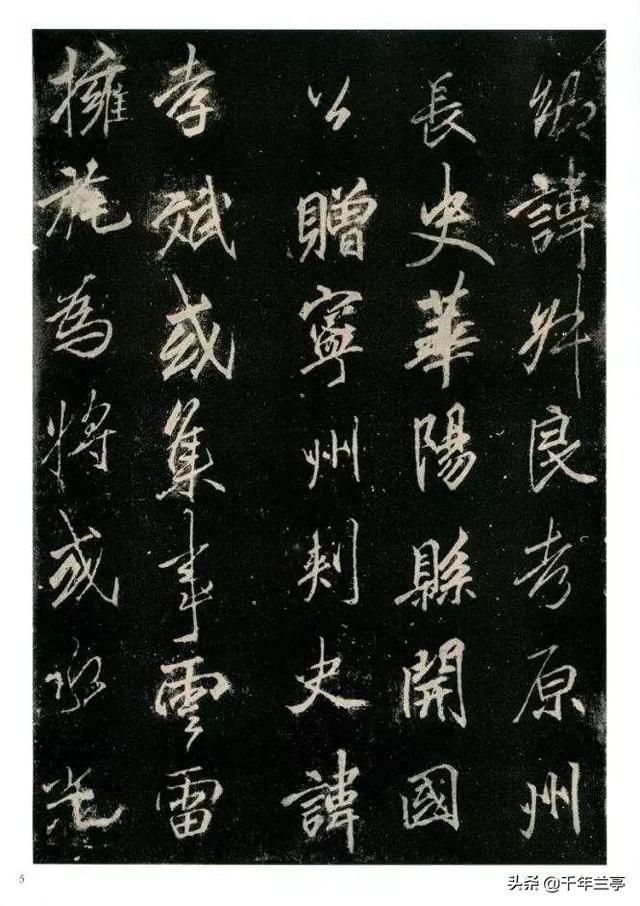 卿諱叔良考原州
長史華陽縣開國
公贈寧州刺史諱
孝斌或集事雲雷
擁旄為將或承光
5
头条 @千年兰亭